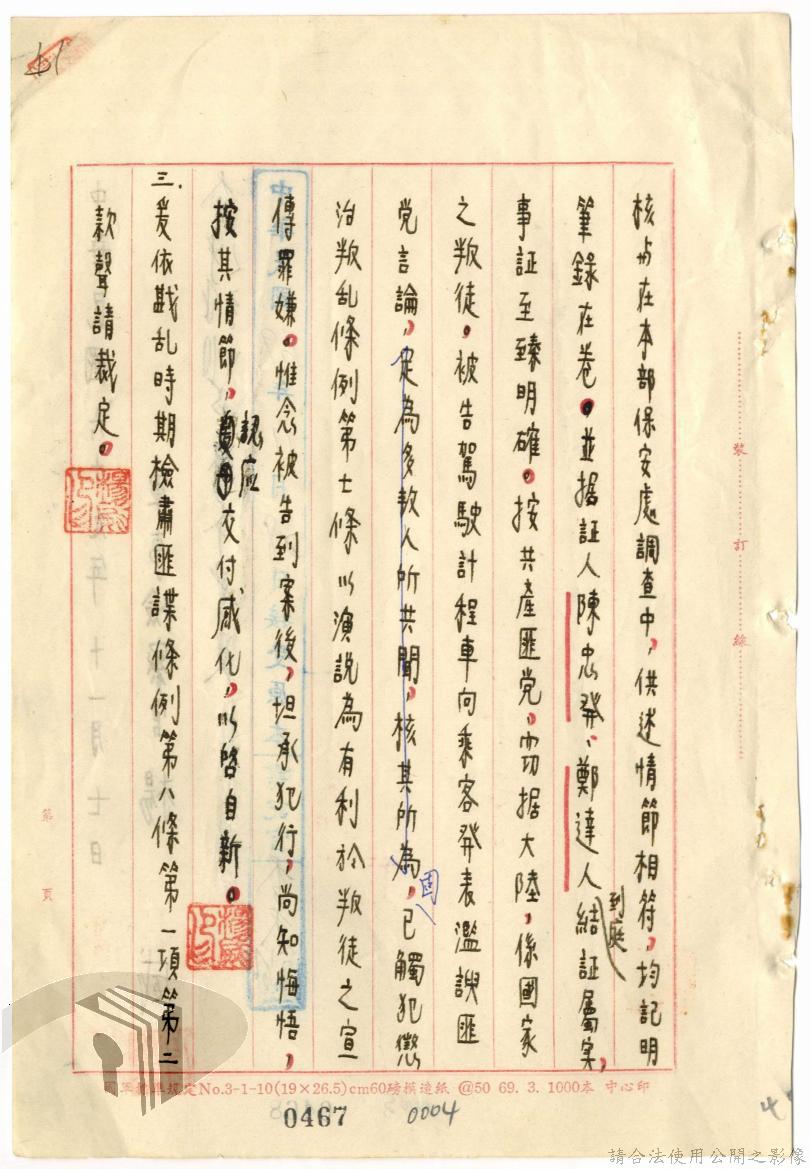 核与在本部保安處調查中,供述情節相符,均記明
筆錄在卷。並据証人陳忠発、鄭達人到庭結証屬实,
事証至臻明確。按共產匪党,窃据大陸,係國家
之叛徒。被告駕駛計程車向乘客発表濫諛匪
党言論,足為多数人所共聞,核其所為,固已觸犯懲
治叛乱條例第七條以演說為有利於叛徒之宣
傳罪嫌。惟念被告到案後,坦承犯行,尚知悔悟,
按其情節,認应交付感化,以啓自新。
三、爰依戡乱時期檢肅匪諜條例第八條第一項第二
款聲請裁定。
裝訂線
第 頁
年十一月七日
No.3-1-10(19×26.5)cm60磅模造紙 @50 69. 3. 1000本 中心印
0467
0004
請合法使用公開之影像